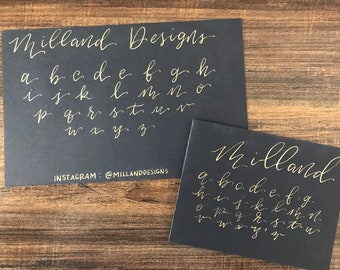 Milland Designs
a b c d e f g h
i j k l m n o
p q r s t u v
w x y z
INSTAGRAM : @MILLANDDESIGNS
Milland
a b c d e f g
h i j k l m n
o p q r s t u
v w x y z